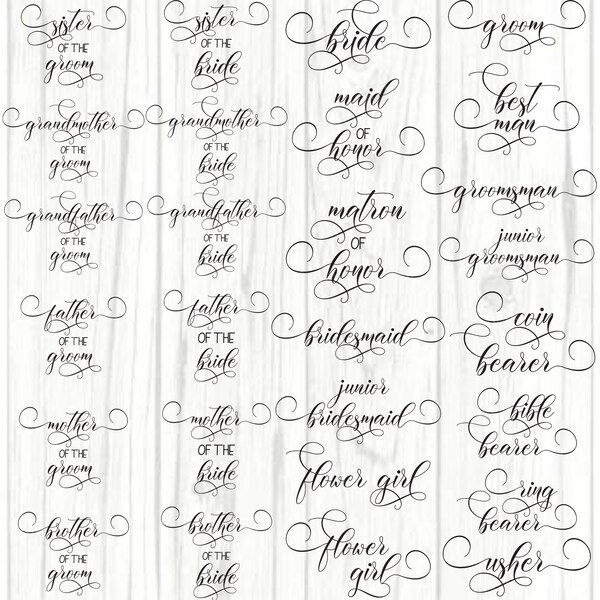 sister
OF THE
groom
grandmother
OF THE
groom
grandfather
OF THE
groom
father
OF THE
groom
mother
OF THE
groom
brother
OF THE
groom
sister
OF THE
bride
grandmother
OF THE
bride
grandfather
OF THE
bride
father
OF THE
bride
mother
OF THE
bride
brother
OF THE
bride
bride
maid
OF
honor
matron
OF
honor
bridesmaid
junior
bridesmaid
flower girl
flower
girl
groom
best
man
groomsman
junior
groomsman
coin
bearer
bible
bearer
ring
bearer
usher